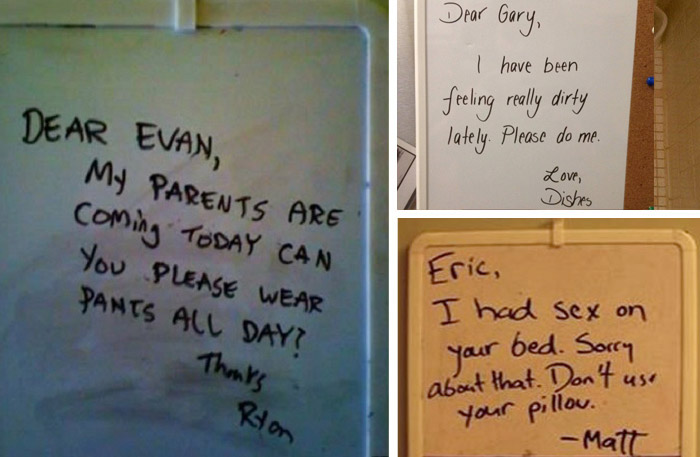 DEAR EVAN,
My PARENTS ARE
COMing TODAY CAN
YOU PLEASE WEAR
PANTS ALL DAY?
Thanks
Ryan
Dear Gary,
I have been
feeling really dirty
lately. Please do me.
Love,
Dishes
Eric,
I had sex on
your bed. Sorry
about that. Don't use
your pillow.
-Matt